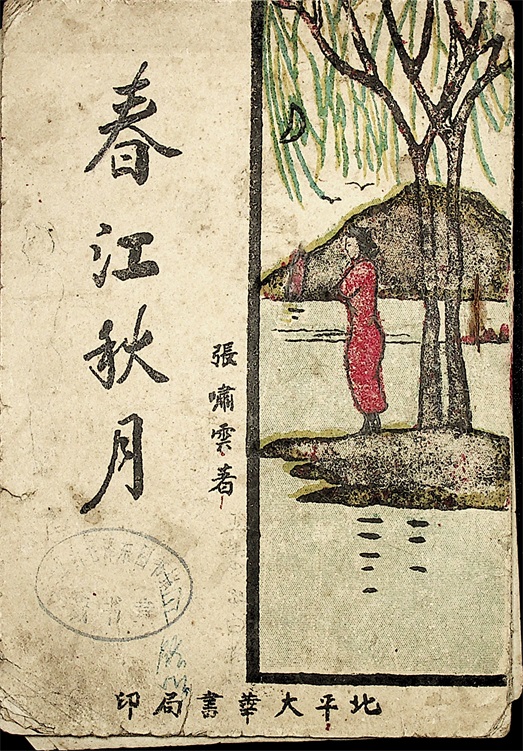 春江秋月
張嘯雲著
北平大華書局印